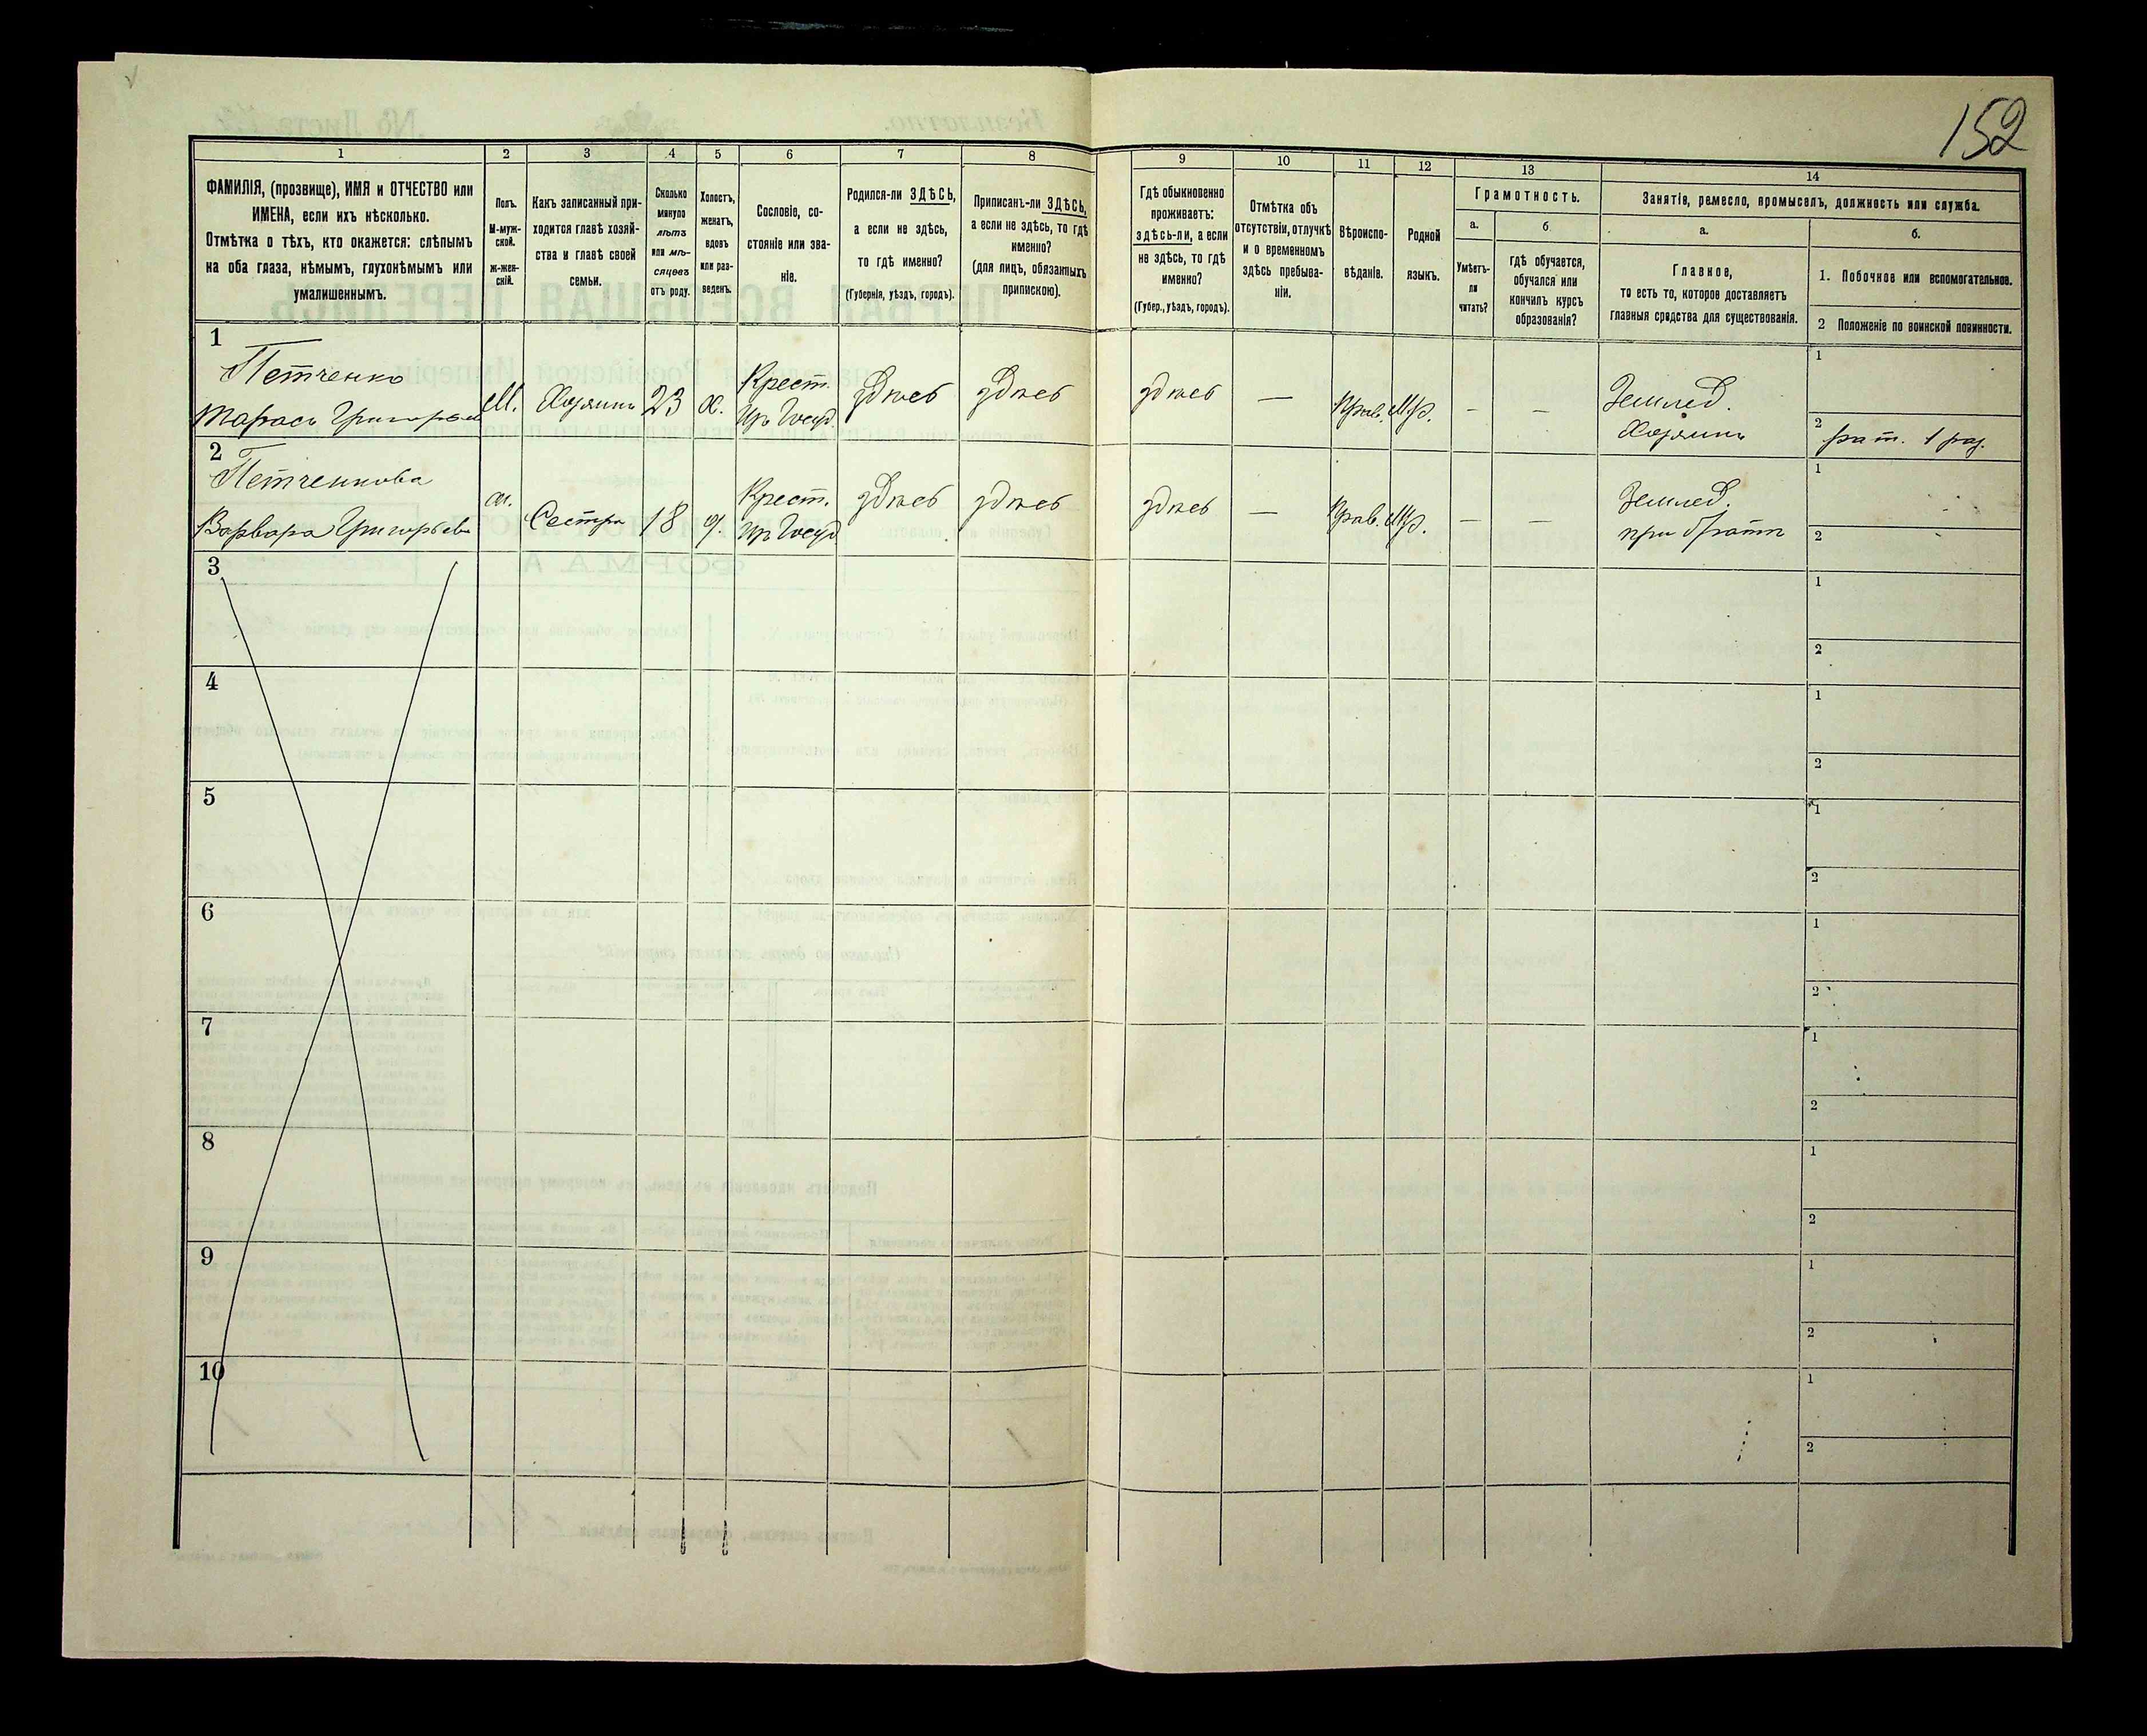 152
1 2 3 4 5 6 7 8 9 10 11 12 13 14
ФАМИЛІЯ, (прозвище), ИМЯ и ОТЧЕСТВО или
ИМЕНА, если ихъ нѣсколько.
Отмѣтка о тѣхъ, кто окажется: слѣпымъ
на оба глаза, нѣмымъ, глухонѣмымъ или
умалишеннымъ.
Полъ.
М-муж-
ской.
ж-жен-
скій.
Какъ записанный при-
ходится главѣ хозяй-
ства и главѣ своей
семьи.
Сколько
минуло
лѣтъ
или мѣ-
сяцевъ
отъ роду.
Холостъ,
женатъ,
вдовъ
или раз-
веденъ.
Сословіе, со-
стояніе или зва-
ніе.
Родился-ли ЗДѢСЬ,
а если не здѣсь,
то гдѣ именно?
(Губернія, уѣздъ, городъ).
Приписанъ-ли ЗДѢСЬ,
а если не здѣсь, то гдѣ
именно?
(для лицъ, обязанныхъ
припискою).
Гдѣ обыкновенно
проживаетъ:
здѣсь-ли, а если
не здѣсь, то гдѣ
именно?
(Губер., уѣздъ, городъ).
Отмѣтка объ
отсутствіи, отлучкѣ
и о временномъ
здѣсь пребыва-
ніи.
Вѣроиспо-
вѣданіе.
Родной
языкъ.
Грамотность.
а.
Умѣетъ-
ли
читать?
б.
гдѣ обучается,
обучался или
кончилъ курсъ
образованія?
Занятіе, ремесло, промыселъ, должность или служба.
а.
Главное,
то есть то, которое доставляетъ
главныя средства для существованія.
б.
1. Побочное или вспомогательное.
2 Положеніе по воинской повинности.
1
Петченко
Тарасъ Григорьев
М. Хозяинъ 23 х.
Крест.
из Госуд.
здѣсь здѣсь здѣсь — Прав. Мр. — —
Землед.
Хозяинъ
1
2 рат. 1 раз.
2
Петченкова
Варвара Григорьев
ж. Сестра 18 д.
Крест.
из Госуд
здѣсь здѣсь здѣсь — Прав. Мр. — —
Землед.
при братѣ
1
2
3
1
2
4
1
2
5
1
2
6
1
2
7
1
2
8
1
2
9
1
2
10
1
2